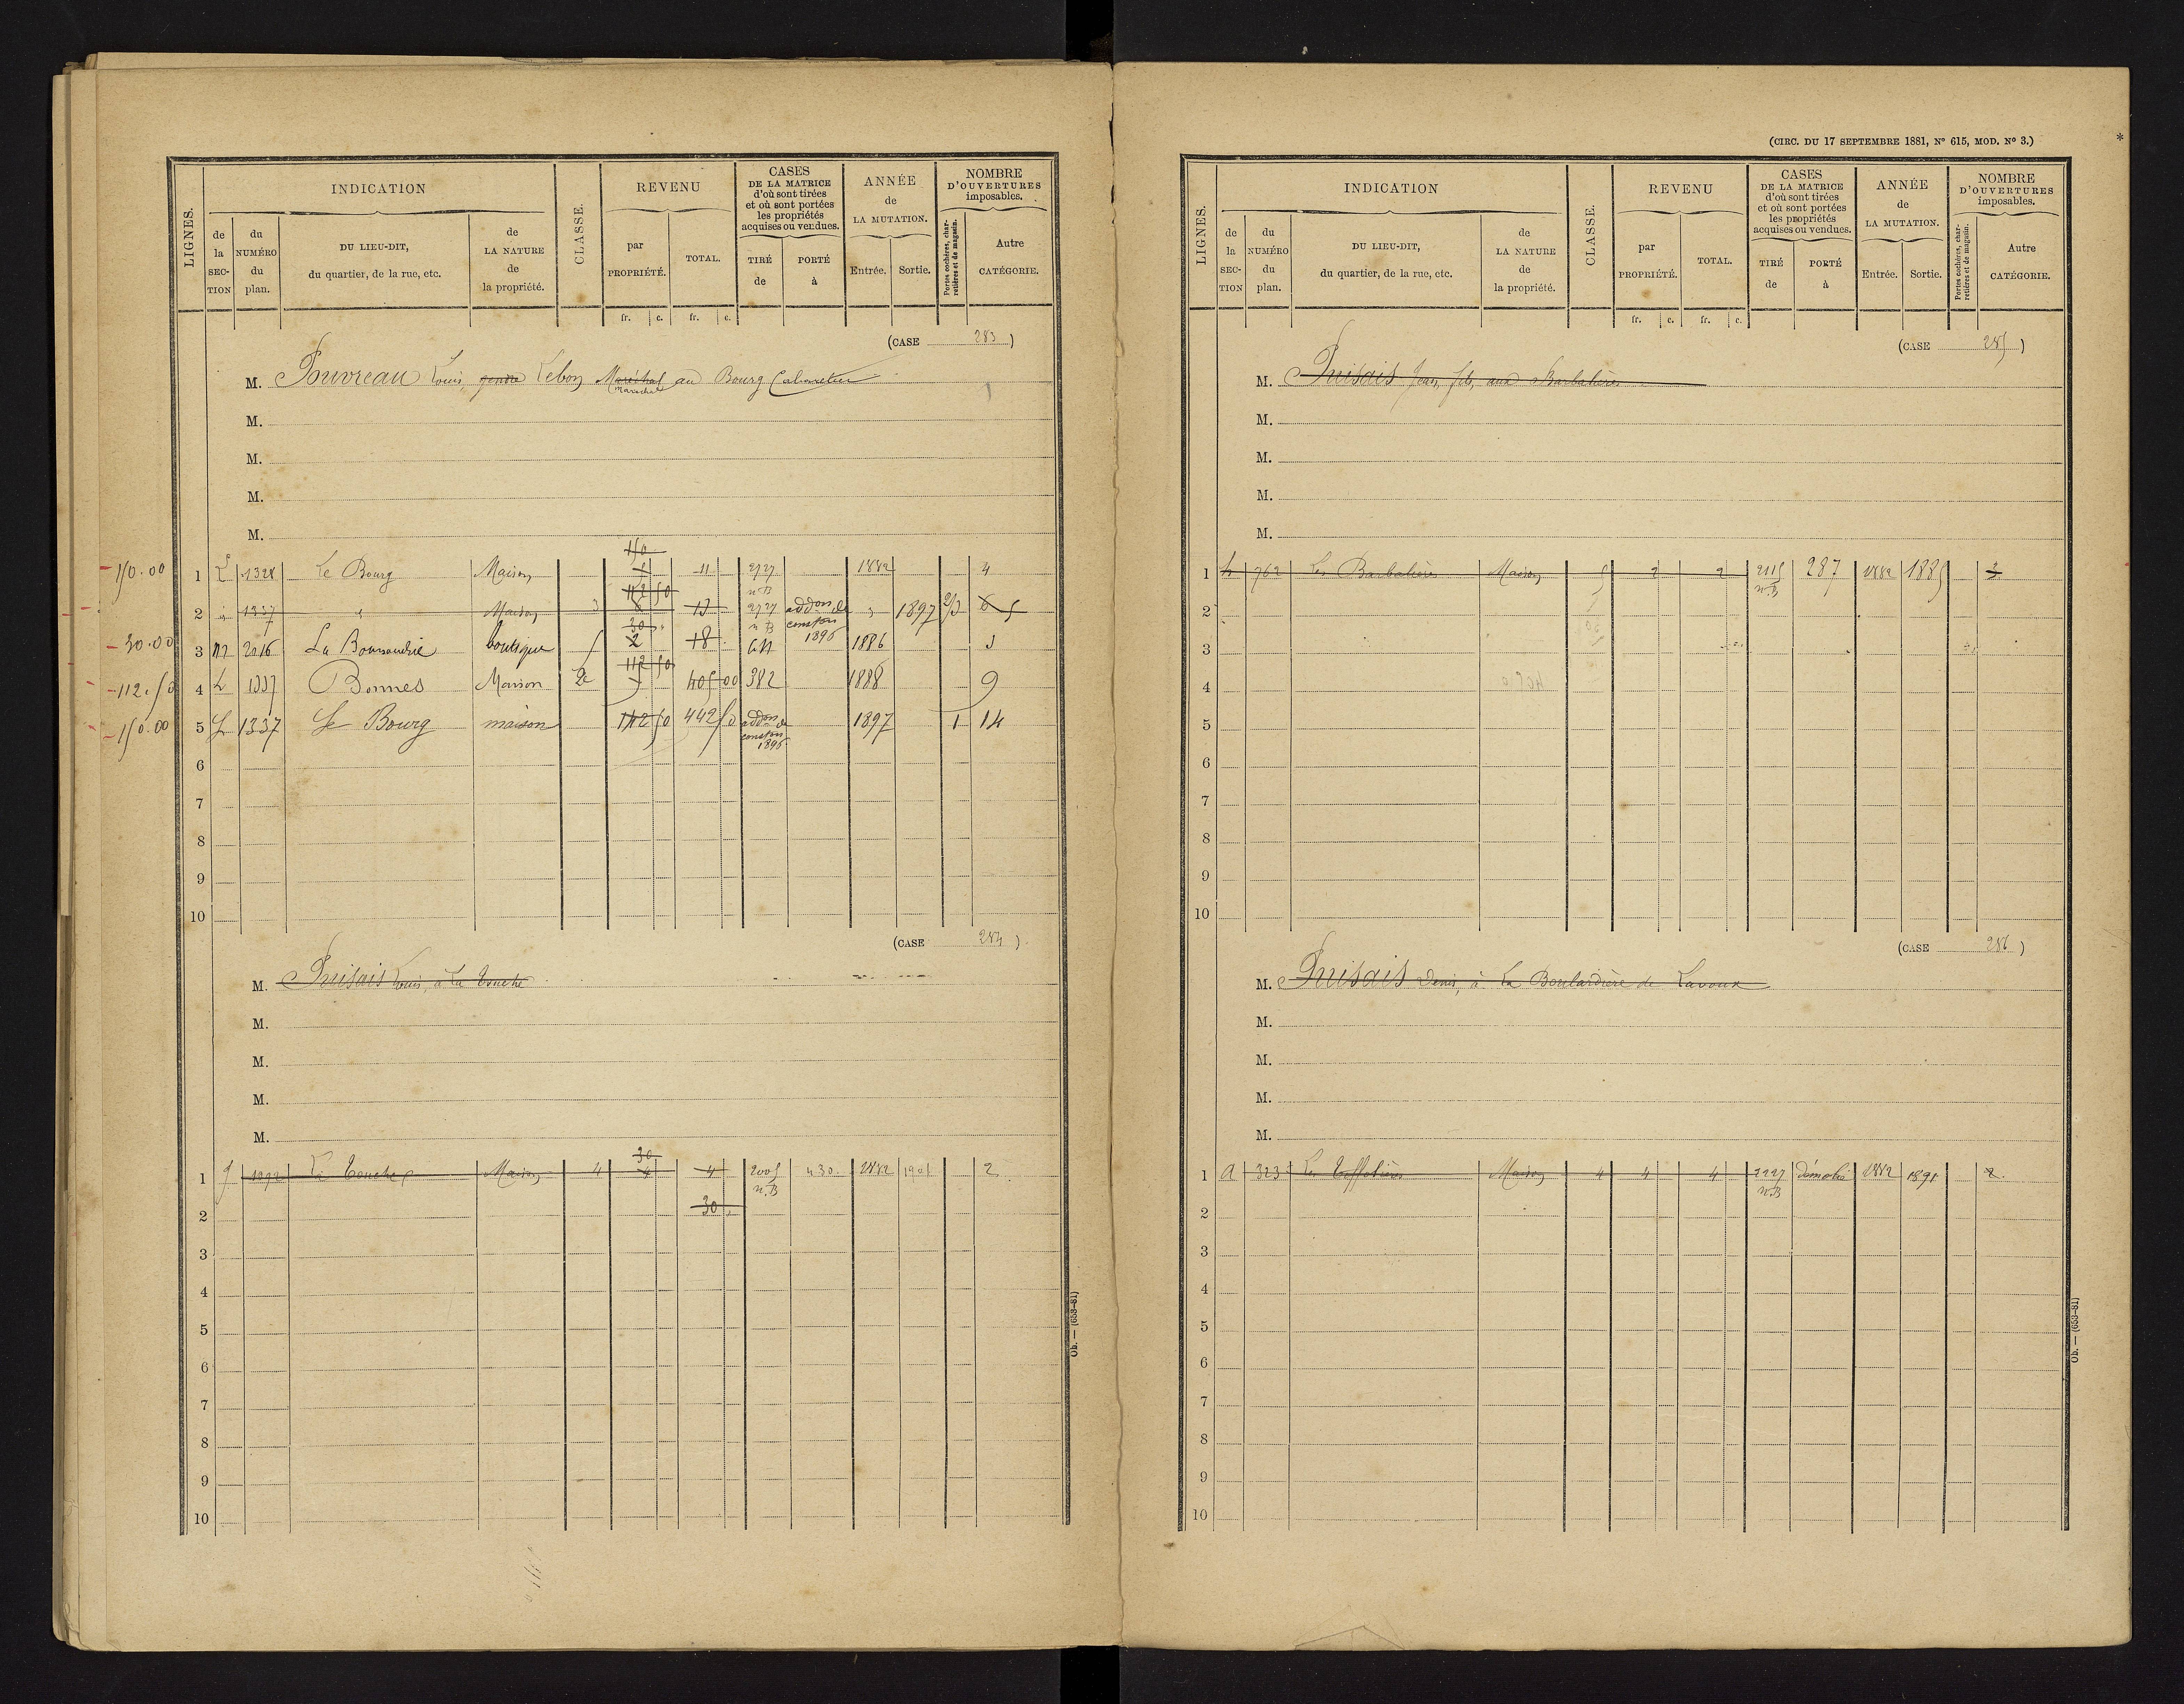 LIGNES.
INDICATION
de la SECTION
du NUMÉRO du plan.
DU LIEU-DIT, du quartier, de la rue, etc.
de LA NATURE de la propriété.
CLASSE.
REVENU
par PROPRIÉTÉ.
TOTAL.
CASES DE LA MATRICE d'où sont tirées et où sont portées les propriétés acquises ou vendues.
TIRÉ de
PORTÉ à
ANNÉE de LA MUTATION.
Entrée.
Sortie.
NOMBRE D'OUVERTURES imposables.
Portes cochères, charretières et de magasin.
Autre CATÉGORIE.
fr. c. fr. c.
(CASE 283)
M. Pouvreau Louis gendre Lebon Maréchal au Bourg Cabaretier
Maréchal
M.
M.
M.
M.
150
150.00 1 L 1328 Le Bourg Maison 11 2727 1882 4
112 50 n.B
2 " 1337 " Maison 3 8 13 2727 addon de 3 1897 2/3 6 5
30 n B conston 1896
30.00 3 M 2016 La Bonnaudrie boutique 2 18 1886 3
112 50
112.50 4 L 1337 Bonnes Maison 2e 405 00 382 1888 9
150.00 5 L 1337 Le Bourg maison 142 50 442 50 addon de 1897 1 14
conston 1896
6
7
8
9
10
(CASE 284)
M. Puisais Louis, à La Touche
M.
M.
M.
M.
30
1 1092 La Touche Maison 4 4 4 2005 430 1882 1901 2
n.B
2 30
3
4
5
6
7
8
9
10
Ob. — (653-81)
(CIRC. DU 17 SEPTEMBRE 1881, N° 615, MOD. N° 3.)
*
LIGNES.
INDICATION
de la SECTION
du NUMÉRO du plan.
DU LIEU-DIT, du quartier, de la rue, etc.
de LA NATURE de la propriété.
CLASSE.
REVENU
par PROPRIÉTÉ.
TOTAL.
CASES DE LA MATRICE d'où sont tirées et où sont portées les propriétés acquises ou vendues.
TIRÉ de
PORTÉ à
ANNÉE de LA MUTATION.
Entrée.
Sortie.
NOMBRE D'OUVERTURES imposables.
Portes cochères, charretières et de magasin.
Autre CATÉGORIE.
fr. c. fr. c.
(CASE 285)
M. Puisais Jean, fils, aux Barbalières
M.
M.
M.
M.
1 L 762 Les Barbalières Maison 5 2 2 2115 287 1882 1885 3
n.B
2
3
4
5
6
7
8
9
10
(CASE 286)
M. Puisais Denis, à La Boulardière de Lavoux
M.
M.
M.
M.
1 A 323 Maison 4 4 4 2227 démolie 1882 1891 2
n.B
2
3
4
5
6
7
8
9
10
Ob. — (653-81)